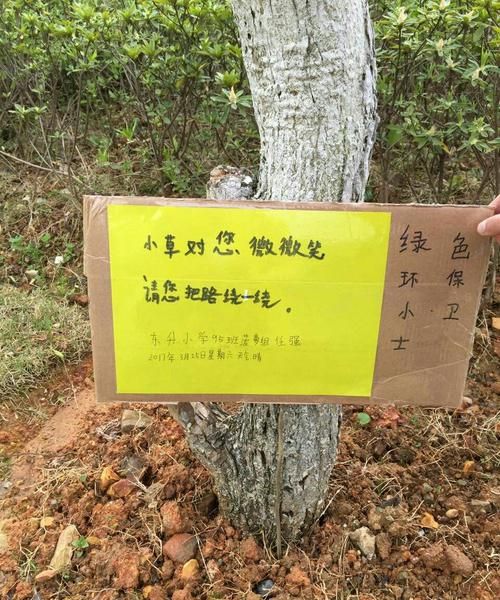 小草对您微微笑
请您把路绕一绕。
东升小学95班菠萝组任强
2017年3月25日星期六 天气晴
绿色
环保
小·卫
士